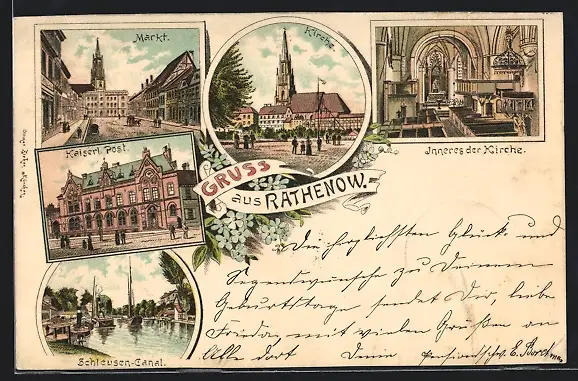 Markt.
Kirche.
Inneres der Kirche.
Kaiserl. Post.
GRUSS
aus RATHENOW.
Schleusen-Canal.
Die herzlichsten Glück- und
Segenswünsche zu Deinem
Geburtstage sendet Dir, liebe
Frieda, mit vielen Grüßen an
Alle dort Deine E. Borchm